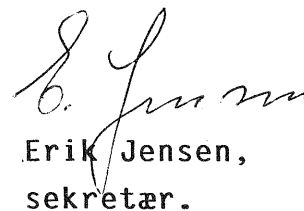 E. Jensen
Erik Jensen,
sekretær.